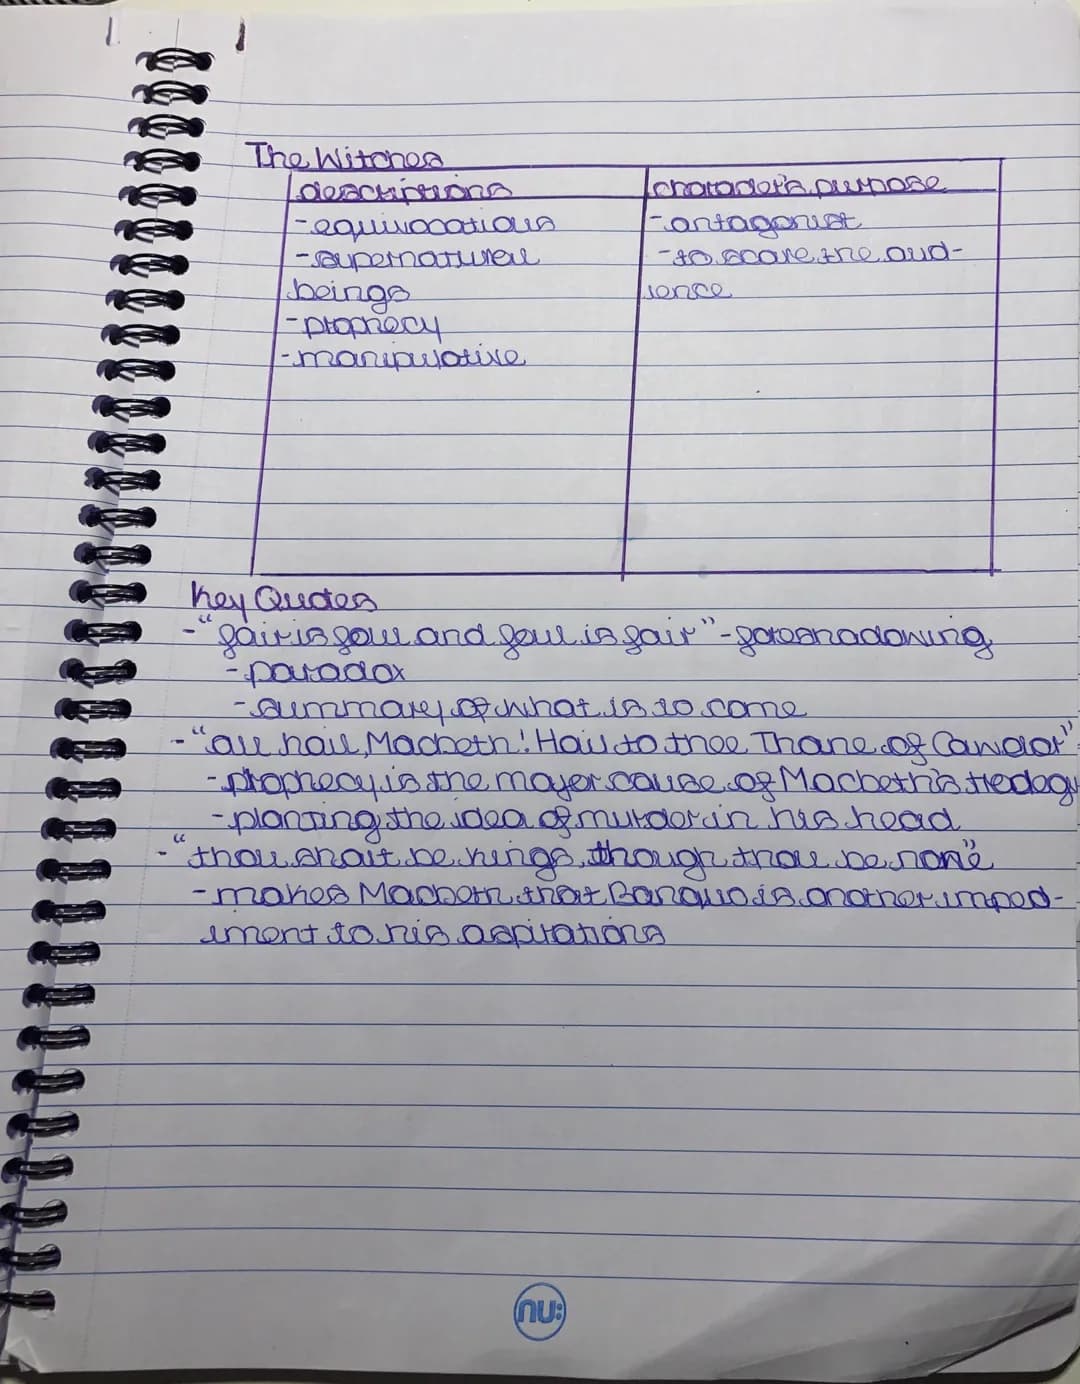 The Witches
descriptions
character's purpose
-equivocatious
-antagonist
-supernatural
-to scare the aud-
beings
ience
-prophecy
-manipulative
Key Quotes
-"fair is foul and foul is fair"-foreshadowing
-paradox
-summary of what is to come
-"all hail, Macbeth! Hail to thee Thane of Cawdor"
-prophecy is the major cause of Macbeth's tredegy
-planting the idea of murder in his head
-"thou shalt be kings, though thou be none"
-makes Macbeth that Banquo is another imped-
iment to his aspirations
nu: